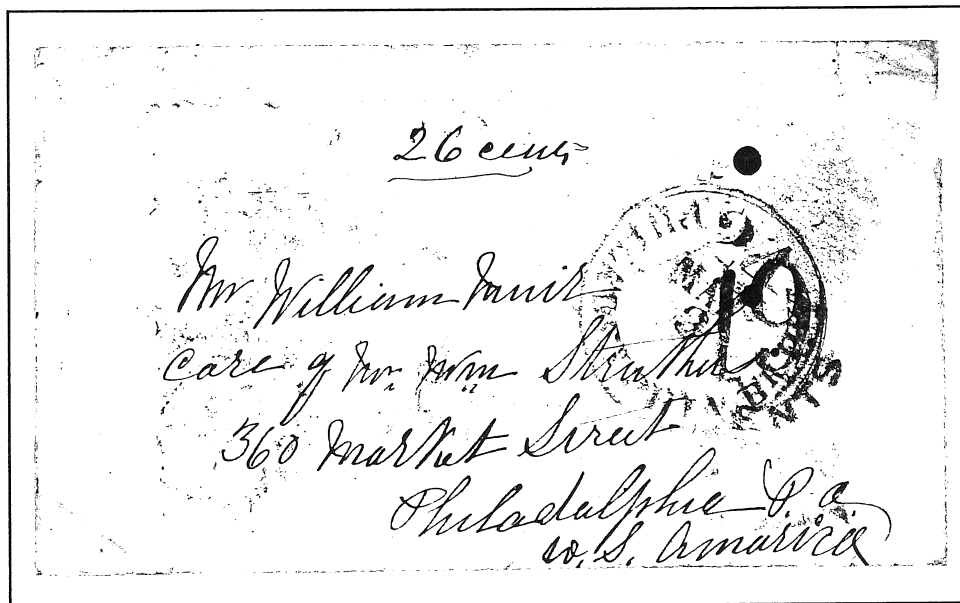 26 cents
19
Mr William Muir
care of Mr. Wm Struthers
360 Market Street
Philadalphia P. a
U. S. Amarica